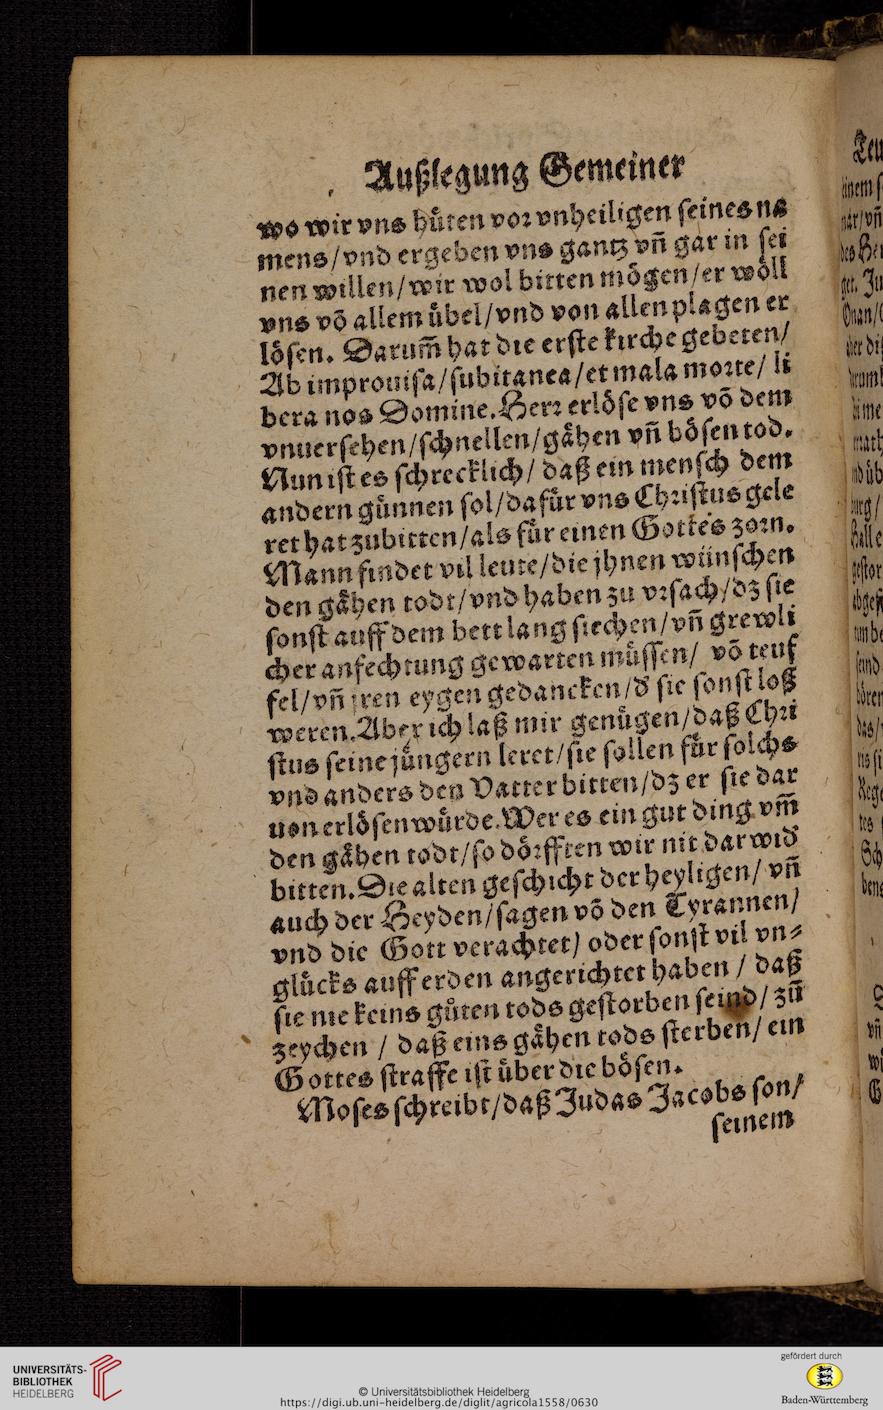 Außlegung Gemeiner
wo wir vns huͤten vor vnheiligen ſeines na
mens/vnd ergeben vns gantz vñ gar in ſei
nen willen/wir wol bitten moͤgen/er woͤll
vns võ allem uͤbel/vnd von allen plagen er
loͤſen. Darum̃ hat die erſte kirche gebeten/
Ab improuiſa/ſubitanea/et mala morte/ li
bera nos Domine. Herr erloͤſe vns võ dem
vnuerſehen/ſchnellen/gaͤhen vñ boͤſen tod.
Nun iſt es ſchrecklich/ daß ein menſch dem
andern guͤnnen ſol/dafuͤr vns Chriſtus gele
ret hat zubitten/als fuͤr einen Gottes zorn.
Mann findet vil leute/die jhnen wünſchen
den gaͤhen todt/vnd haben zu vrſach/dz ſie
ſonſt auff dem bett lang ſiechen/vñ grewli
cher anfechtung gewarten muͤſſen/ võ teuf
fel/vñ jren eygen gedancken/d̃ ſie ſonſt loß
weren. Aber ich laß mir genuͤgen/daß Chri
ſtus ſeine juͤngern leret/ſie ſollen fuͤr ſolchs
vnd anders den Vatter bitten/dz er ſie dar
uon erloͤſen wuͤrde. Wer es ein gut ding vm̃
den gaͤhen todt/ſo doͤrfften wir nit darwid̃
bitten. Die alten geſchicht der heyligen/ vñ
auch der Heyden/ſagen võ den Tyrannen/
vnd die Gott verachtet) oder ſonſt vil vn⸗
gluͤcks auff erden angerichtet haben / daß
ſie nie keins guͤten tods geſtorben ſeind/ zů
zeychen / daß eins gaͤhen tods ſterben/ ein
Gottes ſtraffe iſt uͤber die boͤſen.
Moſes ſchreibt/daß Judas Jacobs ſon/
ſeinem
UNIVERSITÄTS-
BIBLIOTHEK
HEIDELBERG
© Universitätsbibliothek Heidelberg
https://digi.ub.uni-heidelberg.de/diglit/agricola1558/0630
gefördert durch
Baden-Württemberg